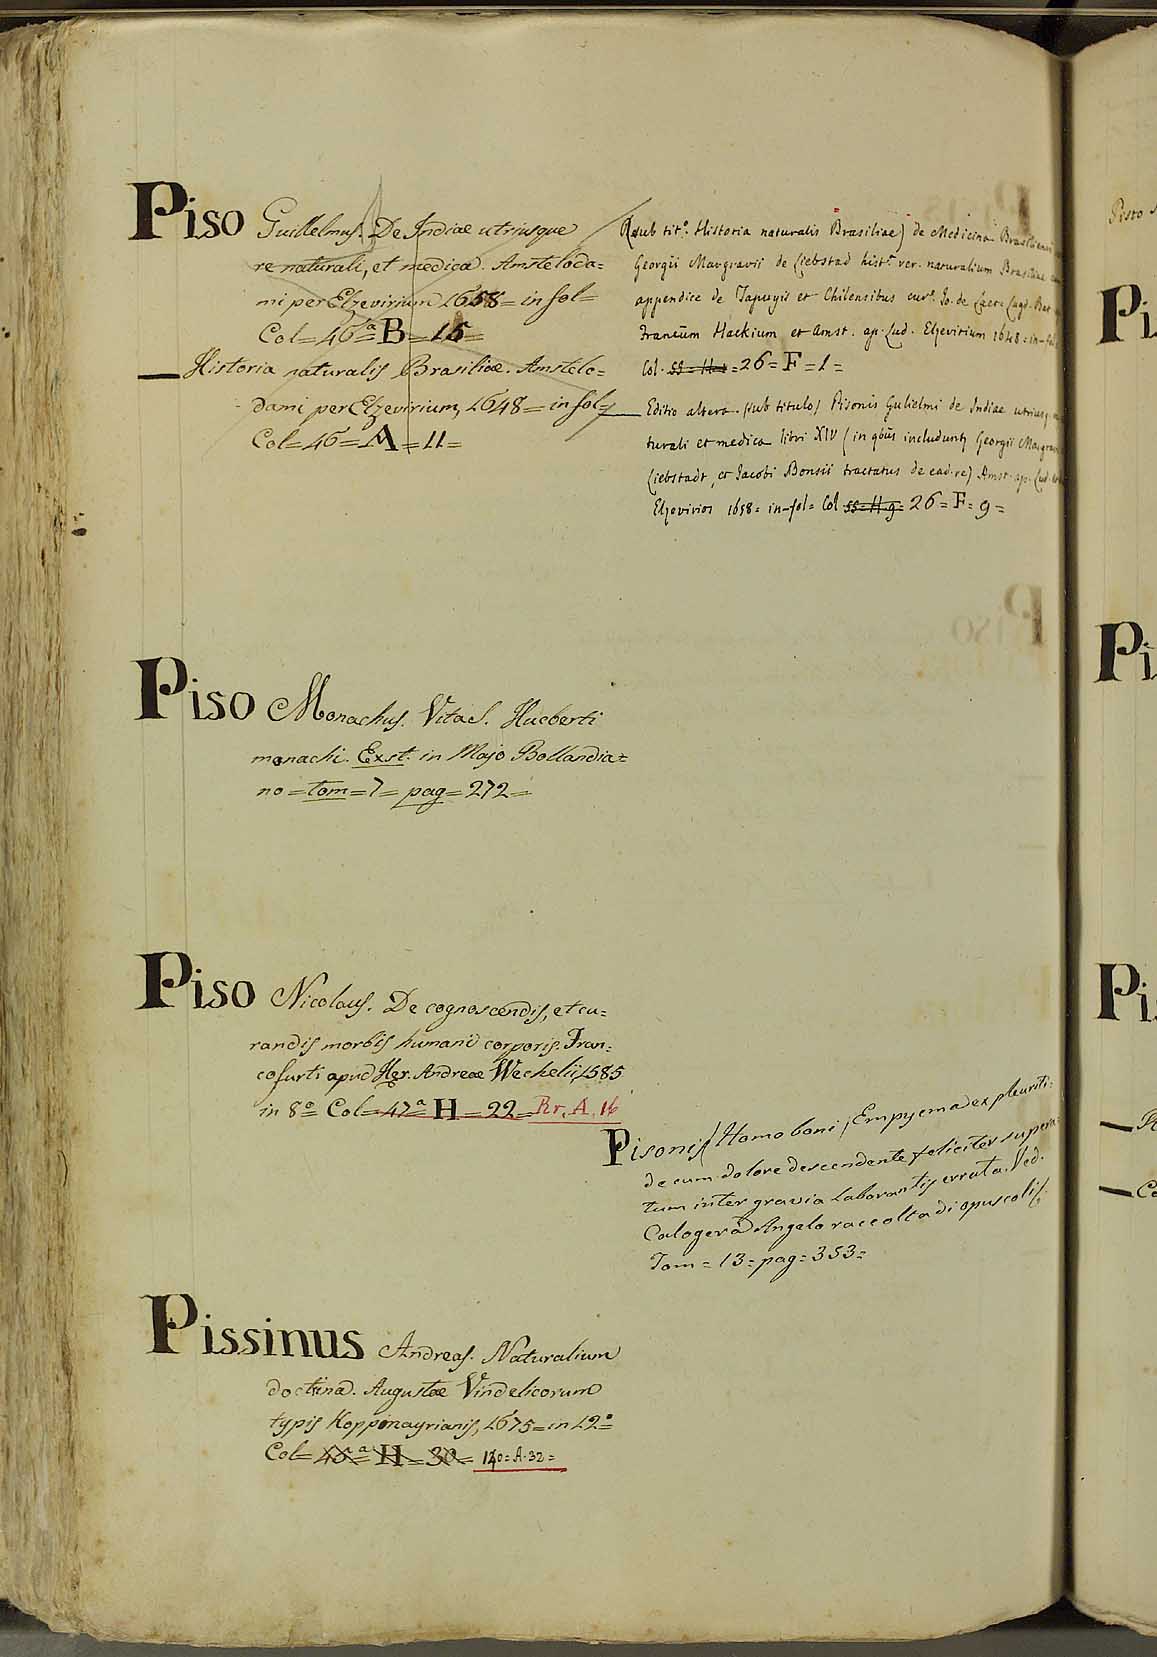 Piso Guillelmus. De Indiae utriusque
re naturali, et medica. Amsteloda=
mi per Elzevirium 1658= in fol=
Col= 46ª= B= 15=
— Historia naturalis Brasiliae. Amstelo=
dami per Elzevirium, 1648= in fol=
Col= 46= A= 11=
(sub tit.º Historia naturalis Brasiliae) de Medicina
Georgii Margravii de Liebstad hist.ª rer. naturalium Brasiliae
appendice de Tapuyis et Chilensibus cur.e Io. de Laet. Lugd. Bat.
Franc̄um Hackium et Amst. ap. Lud. Elzevirium 1648= in-fol
Col. 55= H= = 26= F= 1=
— Editio altera. (sub titulo) Pisonis Gulielmi de Indiae utriusq.
turali et medica libri XIV (in qbūs includunt̄ Georgii
Liebstadt, et Jacobi Bonsii tractatus de ead. re) Amst. ap. Lud.
Elzevirios 1658= in-fol= Col 55= H. 9= 26= F= 9=
Piso Monachus. Vita S. Hucberti
monachi. Exst. in Majo Bollandia=
no= tom= 7= pag= 272=
Piso Nicolaus. De cognoscendis, et cu=
randis morbis humani corporis. Fran=
cofurti apud Her. Andreae Wechelii, 1585
in 8º= Col= 47ª H= 22= Rr. A. 16
Pisonis Homoboni, Empyema ex pleuriti=
de cum dolore descendente feliciter
tum inter gravia laborantis errata. Ved.
Calogerà Angelo raccolta di opuscoli.
Tom= 13= pag= 353=
Pissinus Andreas. Naturalium
doctrina. Augustae Vindelicorum
typis Koppmayrianis, 1675= in 12º=
Col= 45ª= H= 30= 140= A. 32=
Pisto
Pi
Pi
Pi